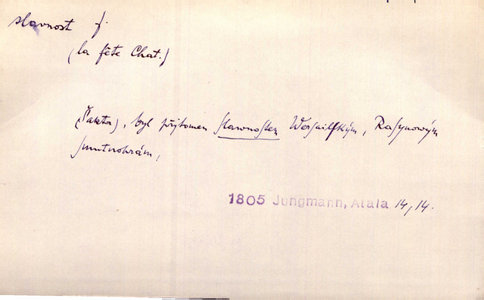 slavnost f.
(la fête Chat.)
(Šakta), byl přjtomen slawnostem Wersailským, Rasynowým
smutnohrám,
1805 Jungmann, Atala 14, 14.